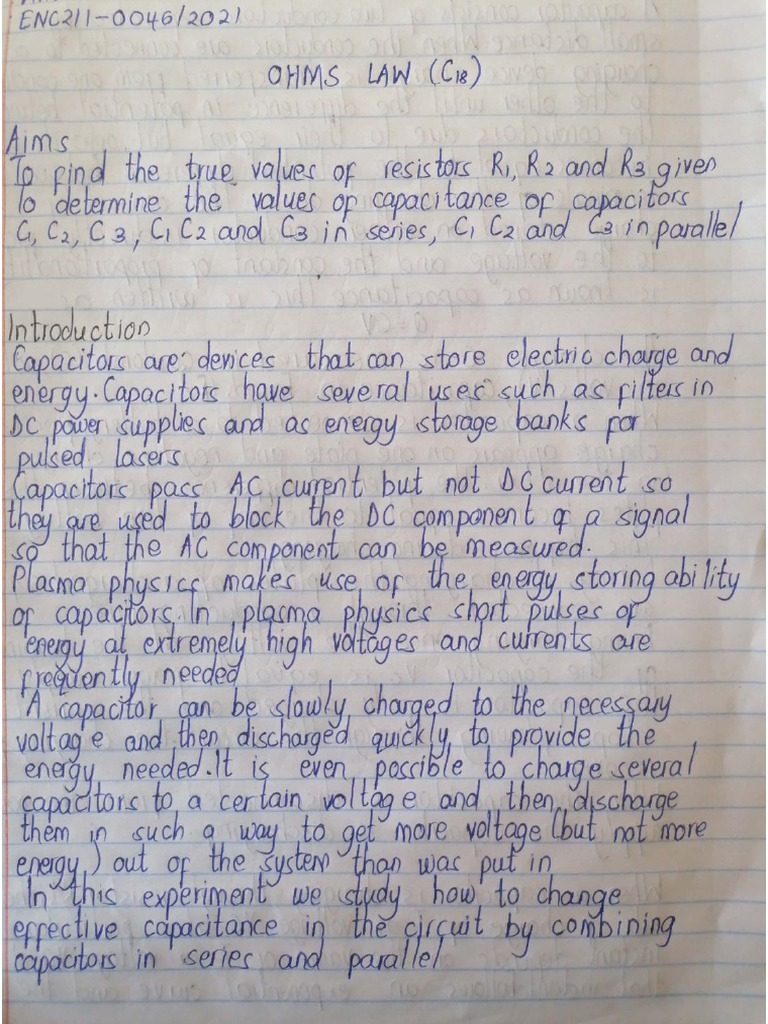 ENC211-0046/2021
OHMS LAW (C18)
Aims
To find the true values of resistors R1, R2 and R3 given
To determine the values of capacitance of capacitors
C1, C2, C3, C1 C2 and C3 in series, C1 C2 and C3 in parallel
Introduction
Capacitors are devices that can store electric charge and
energy. Capacitors have several uses such as filters in
DC power supplies and as energy storage banks for
pulsed lasers
Capacitors pass AC current but not DC current so
they are used to block the DC component of a signal
so that the AC component can be measured.
Plasma physics makes use of the energy storing ability
of capacitors. In plasma physics short pulses of
energy at extremely high voltages and currents are
frequently needed
A capacitor can be slowly charged to the necessary
voltage and then discharged quickly to provide the
energy needed. It is even possible to charge several
capacitors to a certain voltage and then discharge
them in such a way to get more voltage (but not more
energy) out of the system than was put in
In this experiment we study how to change
effective capacitance in the circuit by combining
capacitors in series and parallel